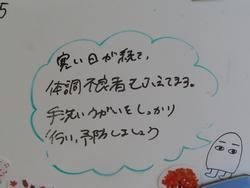 5
寒い日が続き、
体調不良者もふえてます。
手洗いうがいをしっかり
行い、予防しましょう